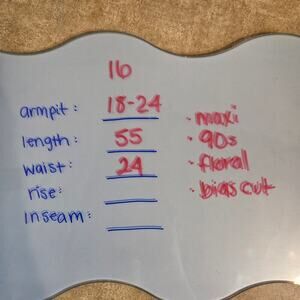 16
armpit: 18-24
length: 55
waist: 24
rise:
inseam:
· maxi
· 90s
· floral
· bias cut